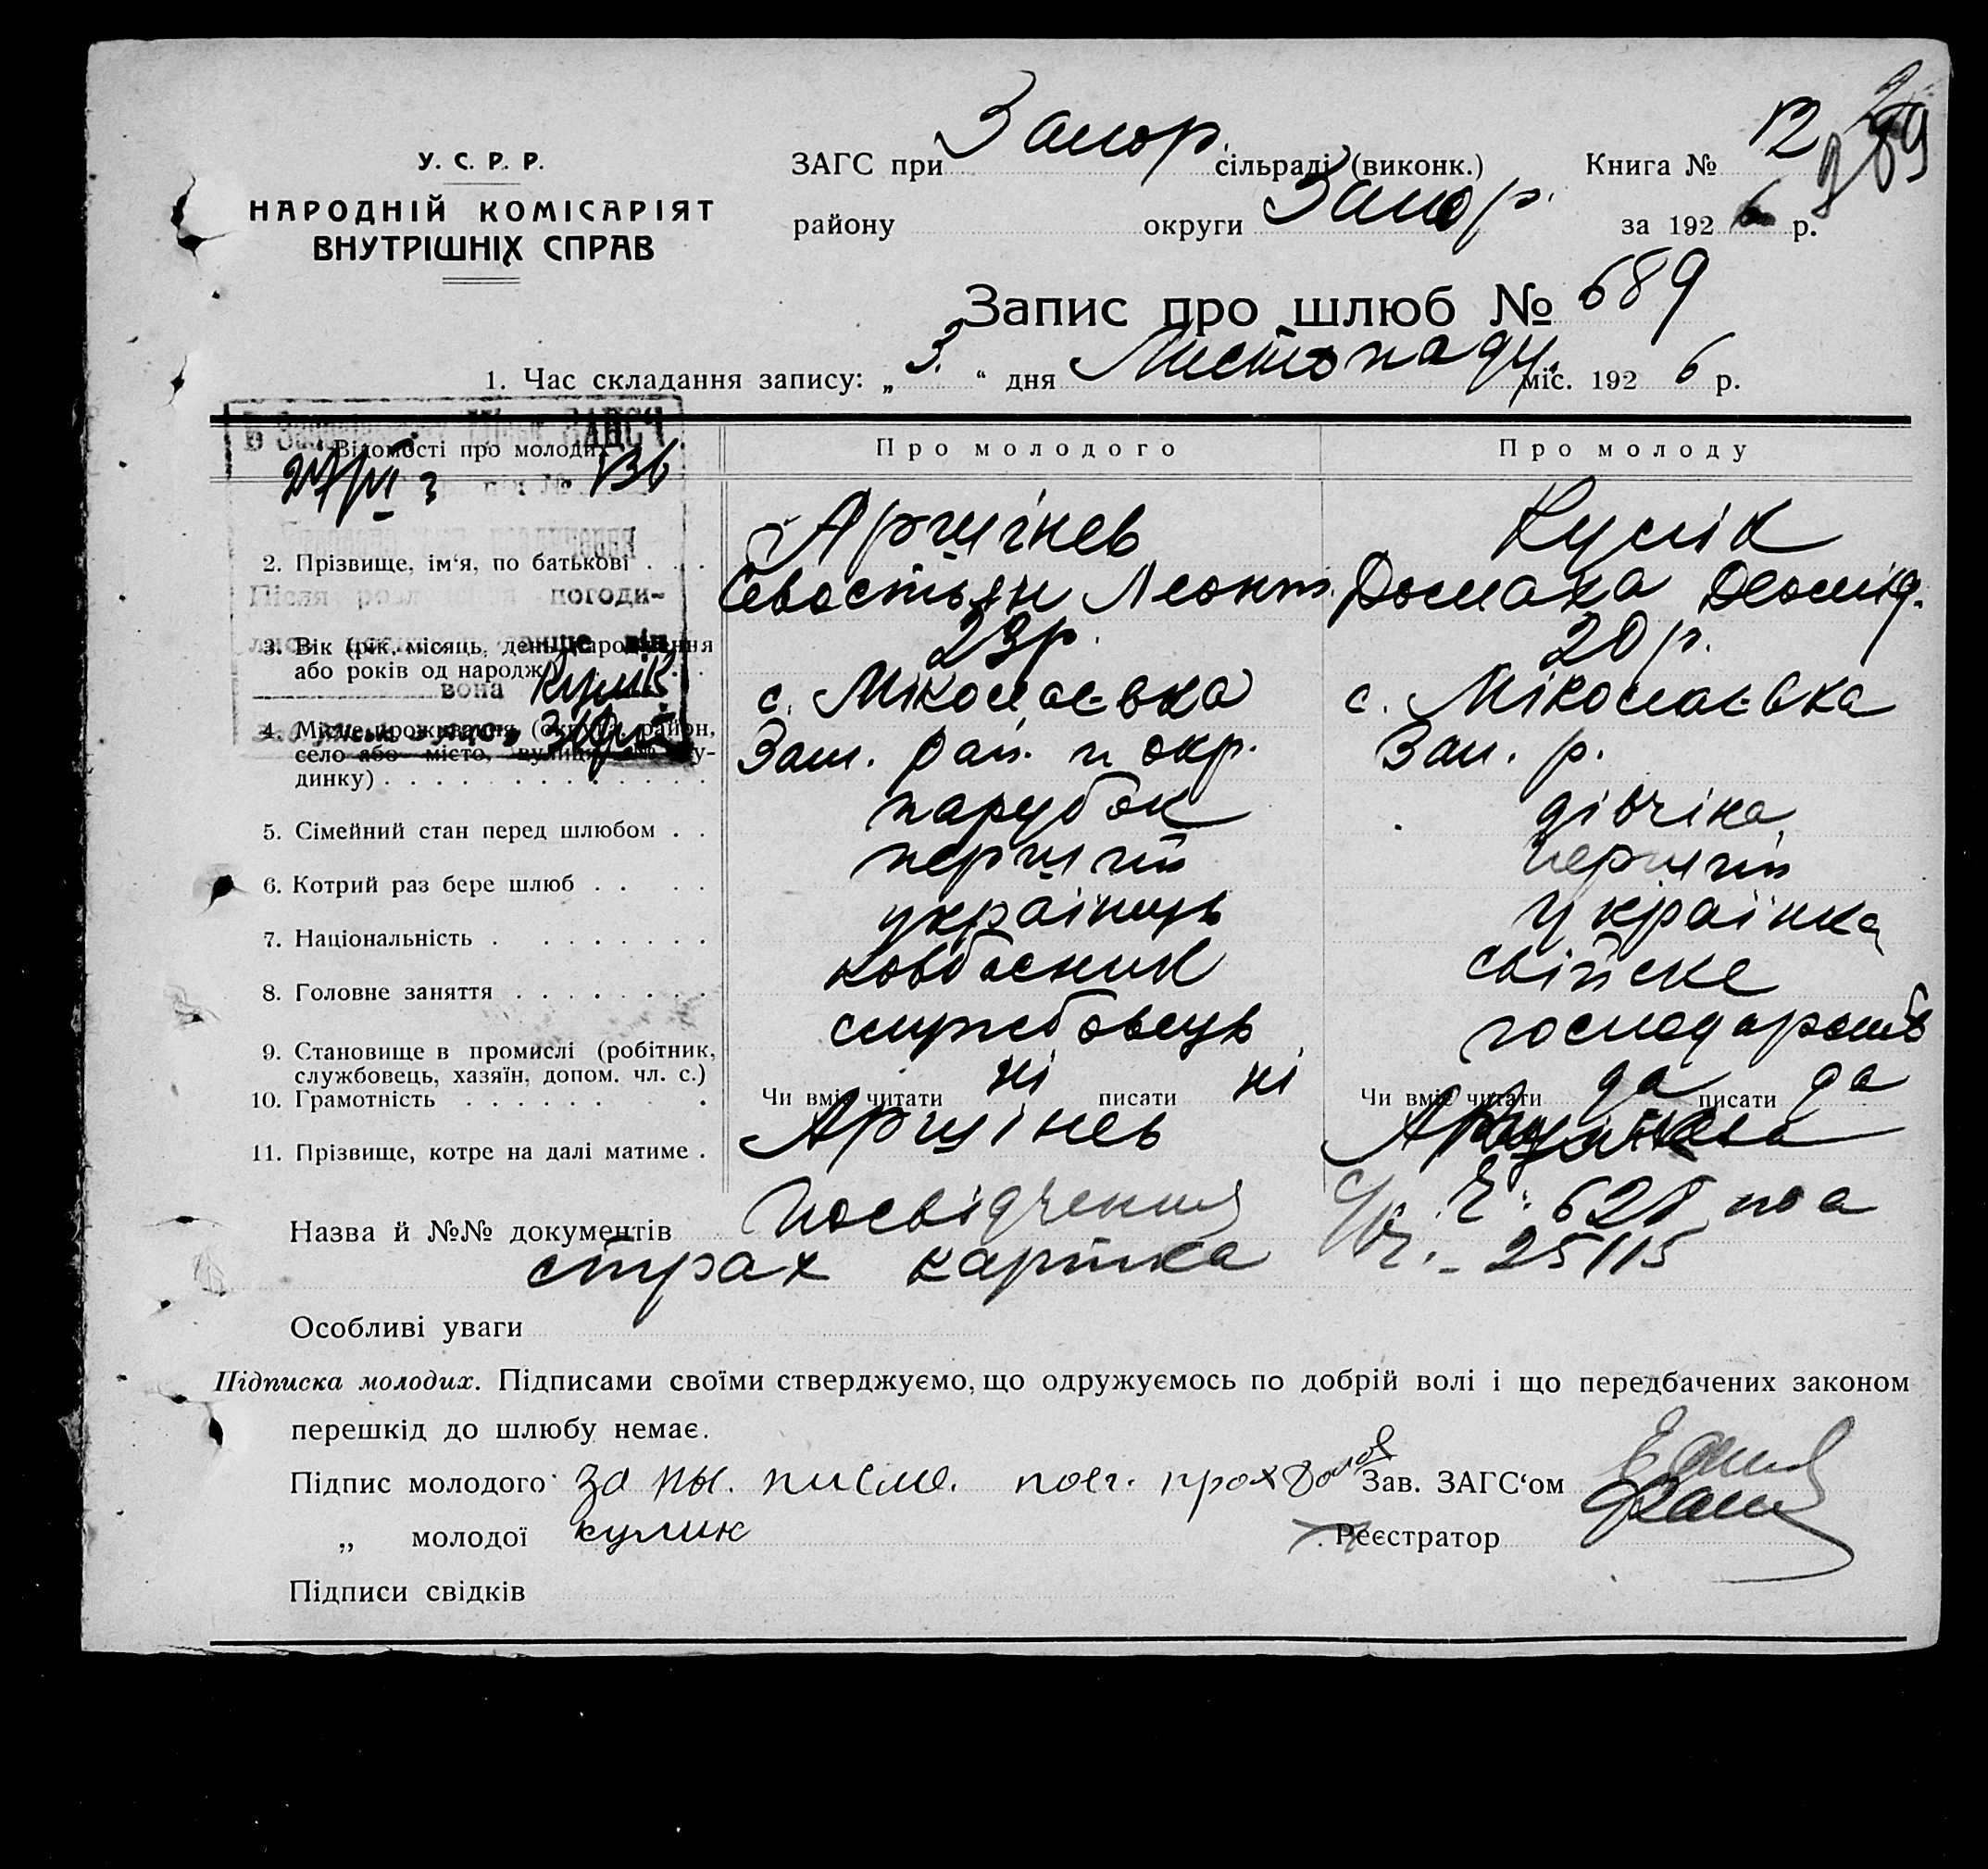 У. С. Р. Р.
НАРОДНІЙ КОМІСАРІЯТ
ВНУТРІШНІХ СПРАВ
ЗАГС при Запор. сільраді (виконк.) Книга № 12
289
району округи Запор. за 1926 р.
Запис про шлюб № 689
1. Час складання запису: „3.“ дня Листопаду міс. 1926 р.
Відомості про молодих
Про молодого Про молоду
ЗАГСі
136
погоди-
вона Кулік
2. Прізвище, ім‘я, по батькові . . . Аршінев Кулік
Севастьян Леонт. Домаха Деомід.
3. Вік (рік, місяць, день народження
або років од народж.) 23р. 20 р.
4. Місце проживання (округа, район,
село або місто, вулиця, № бу-
динку) . . . с. Міколаєвка с. Міколаєвка
Зап. рай. и окр. Зап. р.
5. Сімейний стан перед шлюбом . . парубок дівчіна
6. Котрий раз бере шлюб . . . . перший перший
7. Національність . . . . . . . . українць українка
8. Головне заняття . . . . . . . . ковбасник свійске
господарств
9. Становище в промислі (робітник,
службовець, хазяїн, допом. чл. с.) службовець
10. Грамотність . . . . . . . . Чи вміє читати ні писати ні Чи вміє читати да писати да
11. Прізвище, котре на далі матиме . Аршінев
Назва й №№ документів Посвідчення 628
страх картка 25115
Особливі уваги
Підписка молодих. Підписами своїми стверджуємо, що одружуємось по добрій волі і що передбачених законом
перешкід до шлюбу немає.
Підпис молодого за Зав. ЗАГС‘ом
„ молодої кулик Реєстратор
Підписи свідків